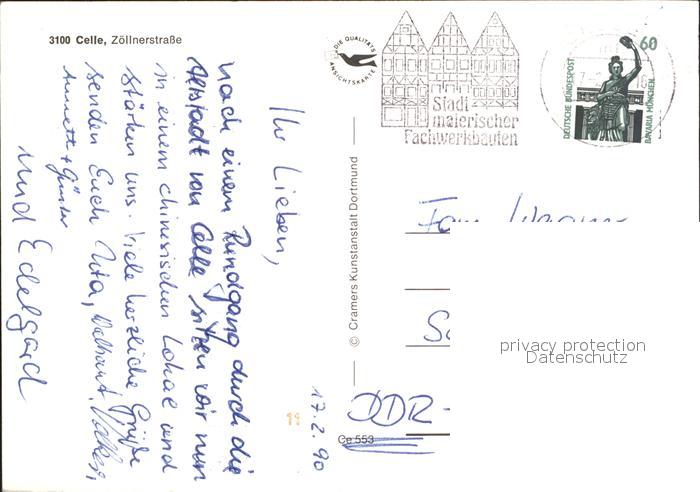 3100 Celle, Zöllnerstraße
DIE QUALITÄTS
ANSICHTSKARTE
Stadt
malerischer
Fachwerkbauten
60
DEUTSCHE BUNDESPOST
BAVARIA MÜNCHEN
© Cramers Kunstanstalt Dortmund
Ihr Lieben,
nach einem Rundgang durch die
Altstadt von Celle sitzen wir nun
in einem chinesischen Lokal und
stärken uns. Viele herzliche Grüße
senden Euch Uta, Volker,
Annett + Günter
und Edelgard
17.2.90
Fam.
DDR -
Ce 553
privacy protection
Datenschutz